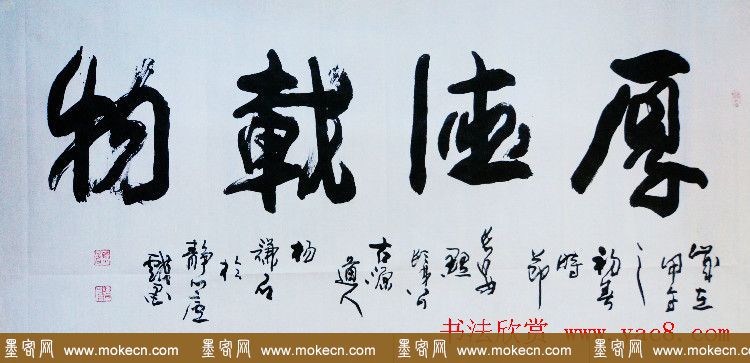 厚德載物
歲在
甲午
之
初春
時
節
古源
道人
楊
謙石
於
靜心廬
戲墨
书法欣赏 www.yac8.com
墨客网 www.mokecn.com 墨客网 www.mokecn.com 墨客网 www.mokecn.com 墨客网 www.mokecn.com